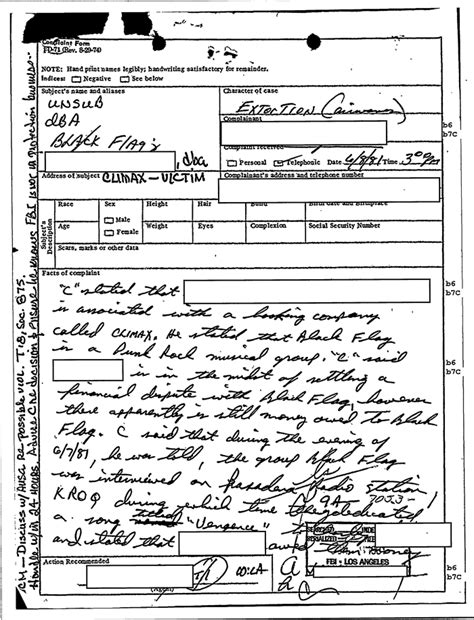 Complaint Form
FD-71 (Rev. 8-29-74)
NOTE: Hand print names legibly; handwriting satisfactory for remainder.
Indices: Negative See below
Subject's name and aliases
UNSUB
dBA
BLACK FLAG
, dba
Character of case
EXTORTION
Complainant
Complaint received
Personal Telephonic Date 6/8/81 Time
b6
b7C
Address of subject CLIMAX - VICTIM
Complainant's address and telephone number
Subject's Description
Race Sex Height Hair Build Birth date and Birthplace
Male
Female
Age Weight Eyes Complexion Social Security Number
Scars, marks or other data
Facts of complaint
"C" stated that
is associated with a booking company
called CLIMAX. He stated that Black Flag
is a Punk Rock musical group. "C" said
is in the midst of settling a
financial dispute with Black Flag, however
there apparently is still money owed to Black
Flag. C said that during the evening of
6/7/81, he was told, the group Black Flag
was interviewed on Pasadena Radio station
KROQ during which time they dedicated
a song "Vengence"
and stated that
b6
b7C
b6
b7C
b6
b7C
9A-
FBI - LOS ANGELES
Action Recommended
CM - Discuss w/AUSA Re possible viol. T.18, Sec. 875.
Handle w/in 24 HOURS. Advise C re decision & ensure he knows FBI is not in protection business.